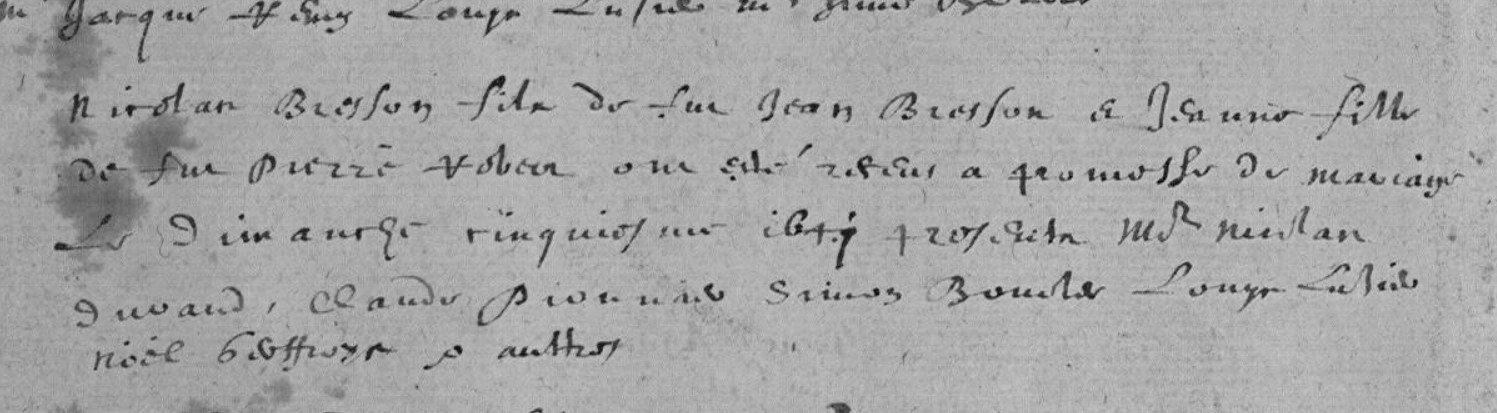 Jacque Remy Louys
Nicolas Bresson fils de feu Jean Bresson et Jeanne fille
de feu Pierrè Rober ont estè receus a promesse de mariage
Le Dimanche cinquiesme presents Mr Nicolas
Durand, Claude Simon Louys
noël Geoffroye & auttres